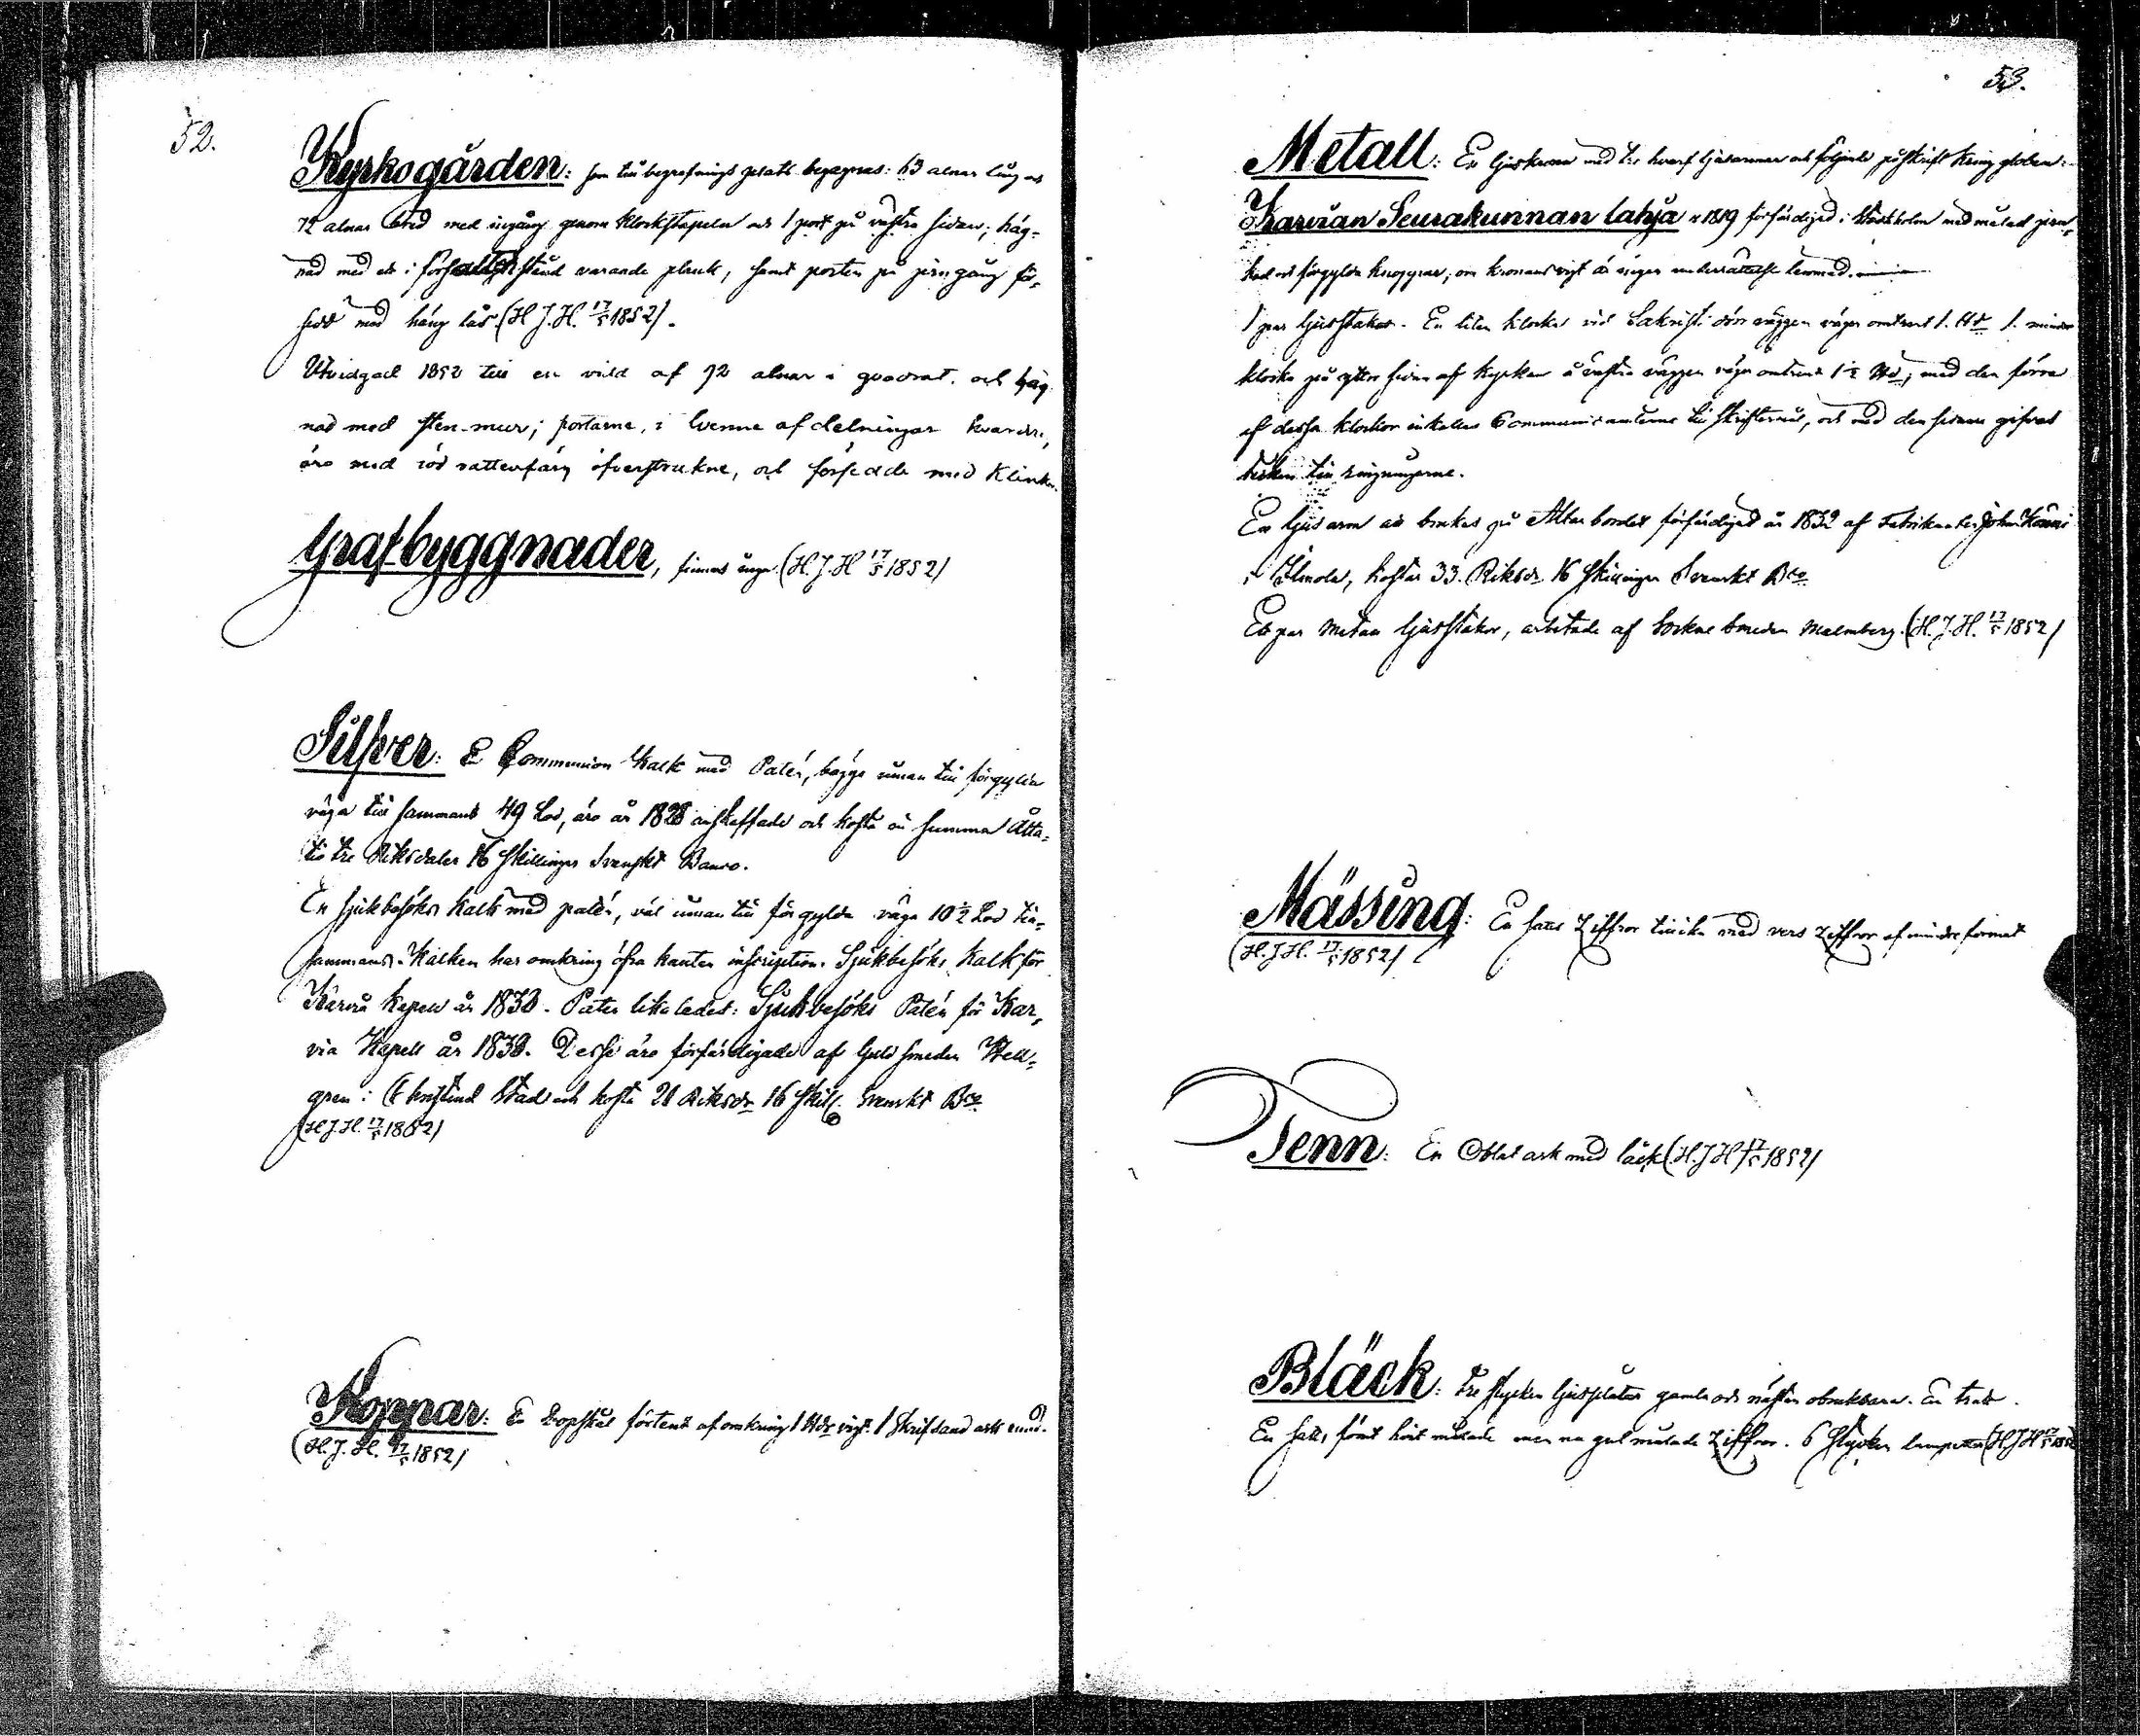 52.
Kyrkogården: som till begrafnings plats begagnas: 63 alnar lång och
72 alnar bred med ingång genom Klockstapeln och 1 port på vestra sidan; häg-
nad med ett i försvarligt stånd varande plank, samt porten på jern gång för-
sedd med häng lås. (H. J. H. 17/5 1852).
Utvidgad 1852 till en vidd af 72 alnar i quadrat. och häg
nad med sten-mur; portarne, i tvenne afdelningar hvardera,
äro med röd vattenfärg öfverstrukne, och försedde med Klinkor.
Grafbyggnader, finnas inga. (H. J. H 17/5 1852)
Silfver: En Communion Kalk med Patén, bägge innan till förgylda
väga till sammans 49 Lod, äro år 1828 anskaffade och kosta en summa Åtta-
tio tre Riksdaler 16 Skillingar Svenskt Banco.
En sjukbesöks Kalk med patén, väl innan till förgylda väga 10 1/2 Lod till-
sammans. Kalken har omkring öfra kanten inscription. Sjukbesöks Kalk för
Karvia Kapell år 1830. Paten likaledes: Sjukbesöks Patén för Kar-
via Kapell år 1830. Desse äro förfärdigade af Guld smeden Hell-
gren i Christinæ Stad och kosta 21 Riksdr 16 Skill. Svenskt Bco
(H. J. H. 17/5 1852)
Koppar: En Dopskål förtent af omkring 1 Mdr vigt. 1 Skrifsand ask
(H. J. H. 17/5 1852)
53.
Metall: En ljuskrona med tre hvarf ljusarmar och följande påskrift kring globen:
Karvian Seurakunnan lahja v 1819 förfärdigad i Stockholm med målad
och förgylda knoppar; om kronans vigt är ingen underrättelse lemnad.
1 par ljusstakar. En liten klocka vid Sakristi dörr väggen väger omtrent 1. 1. mindre
klocka på yttre sidan af kyrkan å västra väggen väger omtrent 1 1/2 med den förra
af dessa klockor inkallas Communicanterne till Skriftermål, och med den senare gifves
tecken till ringningarne.
En ljus arm att brukas på Altar bordet förfärdigad år 1832 af Fabrikanten John Könni
i Ilmola, kostar 33. Riksdr 16 Skillingar Svenskt Bco
Ett par Metall ljusstakar, arbetade af Sockne Smeden Malmberg. (H. J. H. 17/5 1852)
Mässing: En sats Ziffror likaså med vers Ziffror af mindre format
(H. J. H. 17/5 1852)
Tenn: En Oblat ask med låck (H. J H 17/5 1852)
Bläck: Tre stycken ljusplåtar gamla och nästan obrukbara. En tratt.
En sats, förut hvit målade men nu gul målade Ziffror. 6 Stycken lampetter (H J H 17/5 1852